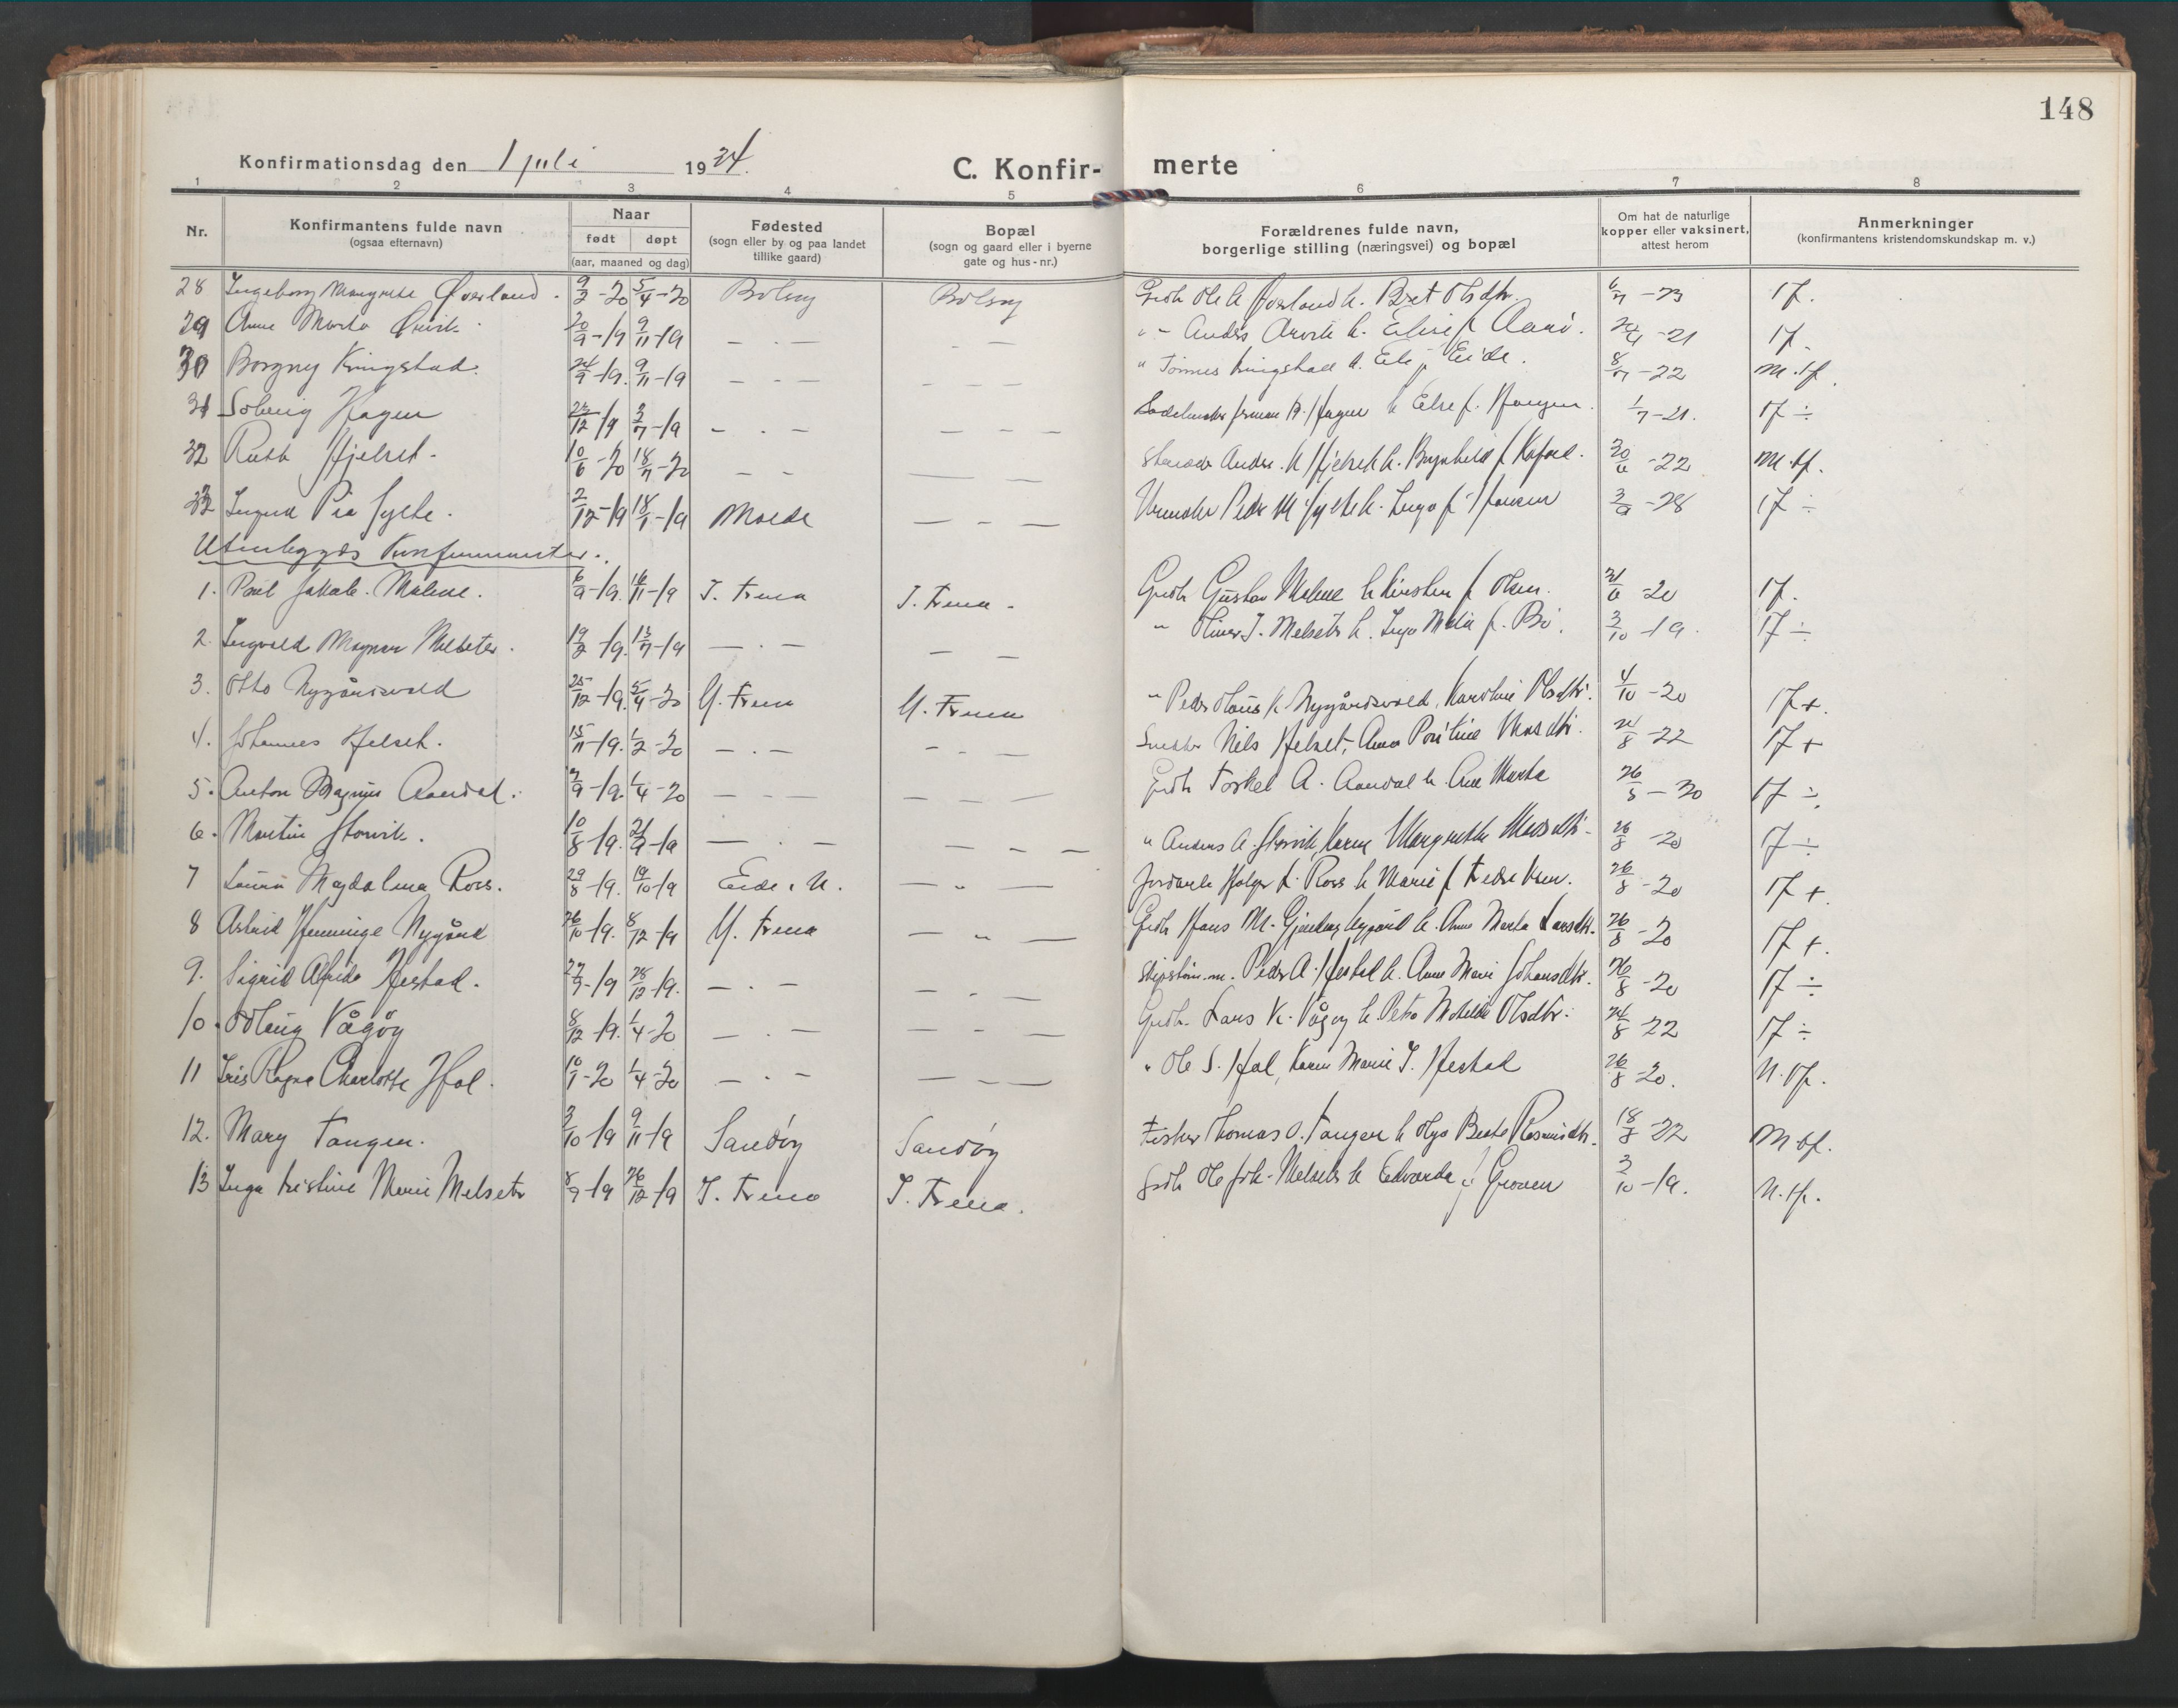 148
Konfirmationsdag den 1 juli 1934.
C. Konfir- merte
1 2 3 4 5 6 7 8
Nr.
Konfirmantens fulde navn
(ogsaa efternavn)
Naar
født døpt
(aar, maaned og dag)
Fødested
(sogn eller by og paa landet
tillike gaard)
Bopæl
(sogn og gaard eller i byerne
gate og hus-nr.)
Forældrenes fulde navn,
borgerlige stilling (næringsvei) og bopæl
Om hat de naturlige
kopper eller vaksinert,
attest herom
Anmerkninger
(konfirmantens kristendomskundskap m. v.)
28 Ingeborg Margrete Øverland. 9/2-20 5/4-20 Bolsøy Bolsøy Grdbr. Ole Øverland h. Beret Olsdtr. 6/7-23 Tf.
29 Anne Marta 20/9-19 9/11-19 — . — — — " Anders h. f. Aarø. -21 Tf.
30 Borgny Kringstad. 24/9-19. 9/11-19 — - — — — — " Tønnes Kringstad h. f. Eide. 8/7-22 M.tf.
31 Solveig Hagen /12-19 - . — — — — Hagen h. Else f. Hagen. 1/7-21. Tf ÷
32 Ruth Hjelset. 10/6-20 18/7-20 — - — — Anders Hjelset h. Brynhild f. -22 M.tf.
33 Pia Sylte. 2/12-19 18/1-19 Molde — - — Peder M. Sylte h. Inga f. Hansen -28 Tf ÷
Utenbygds Konfirmanter.
1. Paul Jakob Malme. 6/9-19. 16/11-19 I. Fræna I. Fræna. Grdbr. Gustav Malme h. Kirsten f. Olsen. -20 Tf.
2. Ingvald Magnar Melseter. 19/2-19. 13/7-19 — . — — — " Oliver J. Melseter h. Inga f. Bø. 3/10-19. Tf ÷
3. Otto Nygårdsvold 25/12-19. 5/4-20 Y. Fræna Y. Fræna " Peder Nygårdsvold, Karoline Olsdtr. 4/10-20 Tf+.
4. Johannes Helset. 15/11-19. 1/2-20 — . — - . — Snekker Nils Helset, Anna 24/8-22 Tf +
5. Anton Magnus Aandal. /9-19. 1/4-20 — — — — - — Grdbr. Torkel A. Aandal h. Ane Marta 26/8-20 Tf ÷.
6. Martin Storvik. 10/8-19. 21/9-19 — . - — — — " Anders A. Storvik, Karen Margrethe 26/8-20 Tf ÷
7 Laura Magdalena Ross. 29/8-19. 19/10-19 Eide, N. — " — Holger Ross h. Marie f. Fredriksen. 26/8-20 Tf +
8 Astrid Henninge Nygård 26/10-19. 8/12-19 Y. Fræna — " — Grdbr. Hans M. Nygård h. Ane Marta Larsdtr. 26/8-20 Tf +.
9. Sigrid Alfrida Hestad. 27/7-19 28/12-19. — . — — - — Peder A. Hestad h. Anne Marie Johansdtr. 26/8-20 Tf ÷
10. Vågøy 8/12-19. 1/4-20 — . — — - — Grdbr. Lars K. Vågøy h. Petra Matelde Olsdtr. 24/8-22 Tf ÷
11 Iris Ragna Charlotte Hol. 10/1-20 1/4-20 — . — — — — " Ole S. Hol, Karen Marie Hestad 26/8-20. N.tf.
12. Mary Tangen. /10-19 9/11-19 Sandøy Sandøy Fisker Thomas O. Tangen h. Olga Beate Rasmusdtr. 18/8-22 M.tf.
13 Inga Kristine Marie Melseter 8/7-19 26/12-19 I. Fræna I. Fræna. Grdbr. Ole Joh. Melseter h. Edvarda f. Groven 3/10-19. N.tf.